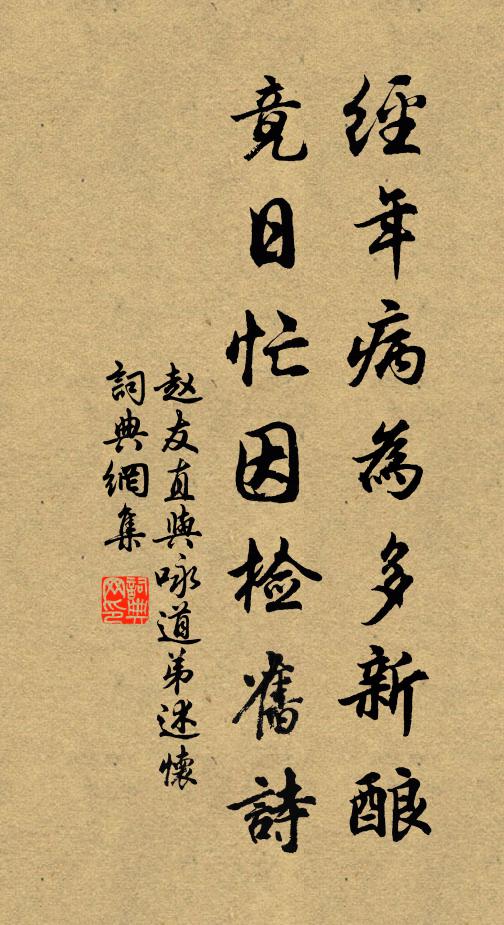 經年病為多新酿
竟日忙因检舊詩
赵友直與咏道弟述懷
詞典網集
詞典网印